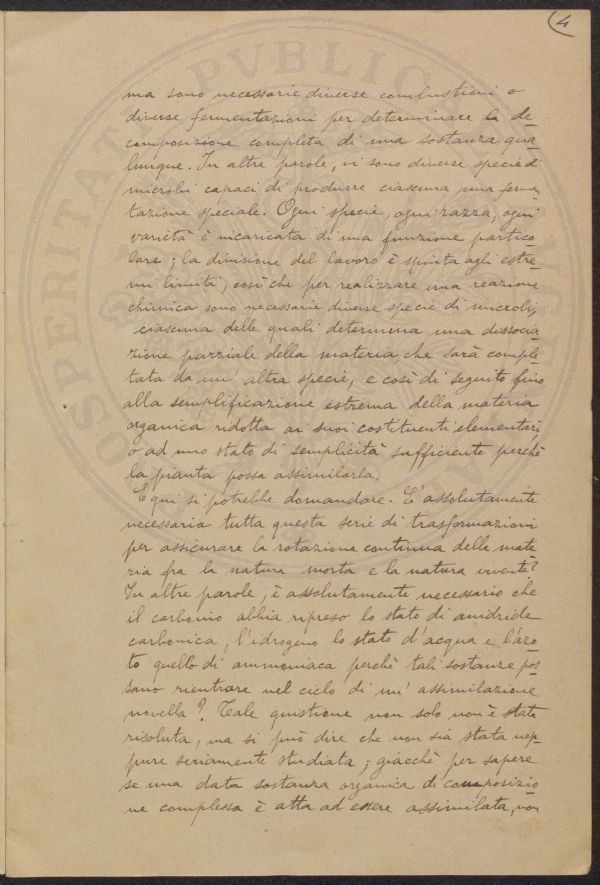 4
ma sono necessarie diverse combustioni o
diverse fermentazioni per determinare la de-
composizione completa di una sostanza qua-
lunque. In altre parole, vi sono diverse specie di
microbi capaci di produrre ciascuna una fermen-
tazione speciale. Ogni specie, ogni razza, ogni
varietà è incaricata di una funzione partico-
lare; la divisione del lavoro è spinta agli estre-
mi limiti, così che per realizzare una reazione
chimica sono necessarie diverse specie di microbi,
ciascuna delle quali determina una dissocia-
zione parziale della materia, che sarà comple-
tata da un' altra specie, e così di seguito fino
alla semplificazione estrema della materia
organica ridotta ai suoi costituenti elementari,
o ad uno stato di semplicità sufficiente perchè
la pianta possa assimilarla.
E qui si potrebbe domandare. E' assolutamente
necessaria tutta questa serie di trasformazioni
per assicurare la rotazione continua della mate-
ria fra la natura morta e la natura vivente?
In altre parole, è assolutamente necessario che
il carbonio abbia ripreso lo stato di anidride
carbonica, l'idrogeno lo stato d'acqua e l'azo-
to quello di ammoniaca perchè tali sostanze pos-
sano rientrare nel ciclo di un' assimilazione
novella? Tale quistione non solo non è stata
risoluta, ma si può dire che non sia stata nep-
pure seriamente studiata; giacchè per sapere
se una data sostanza organica di composizio-
ne complessa è atta ad essere assimilata, non